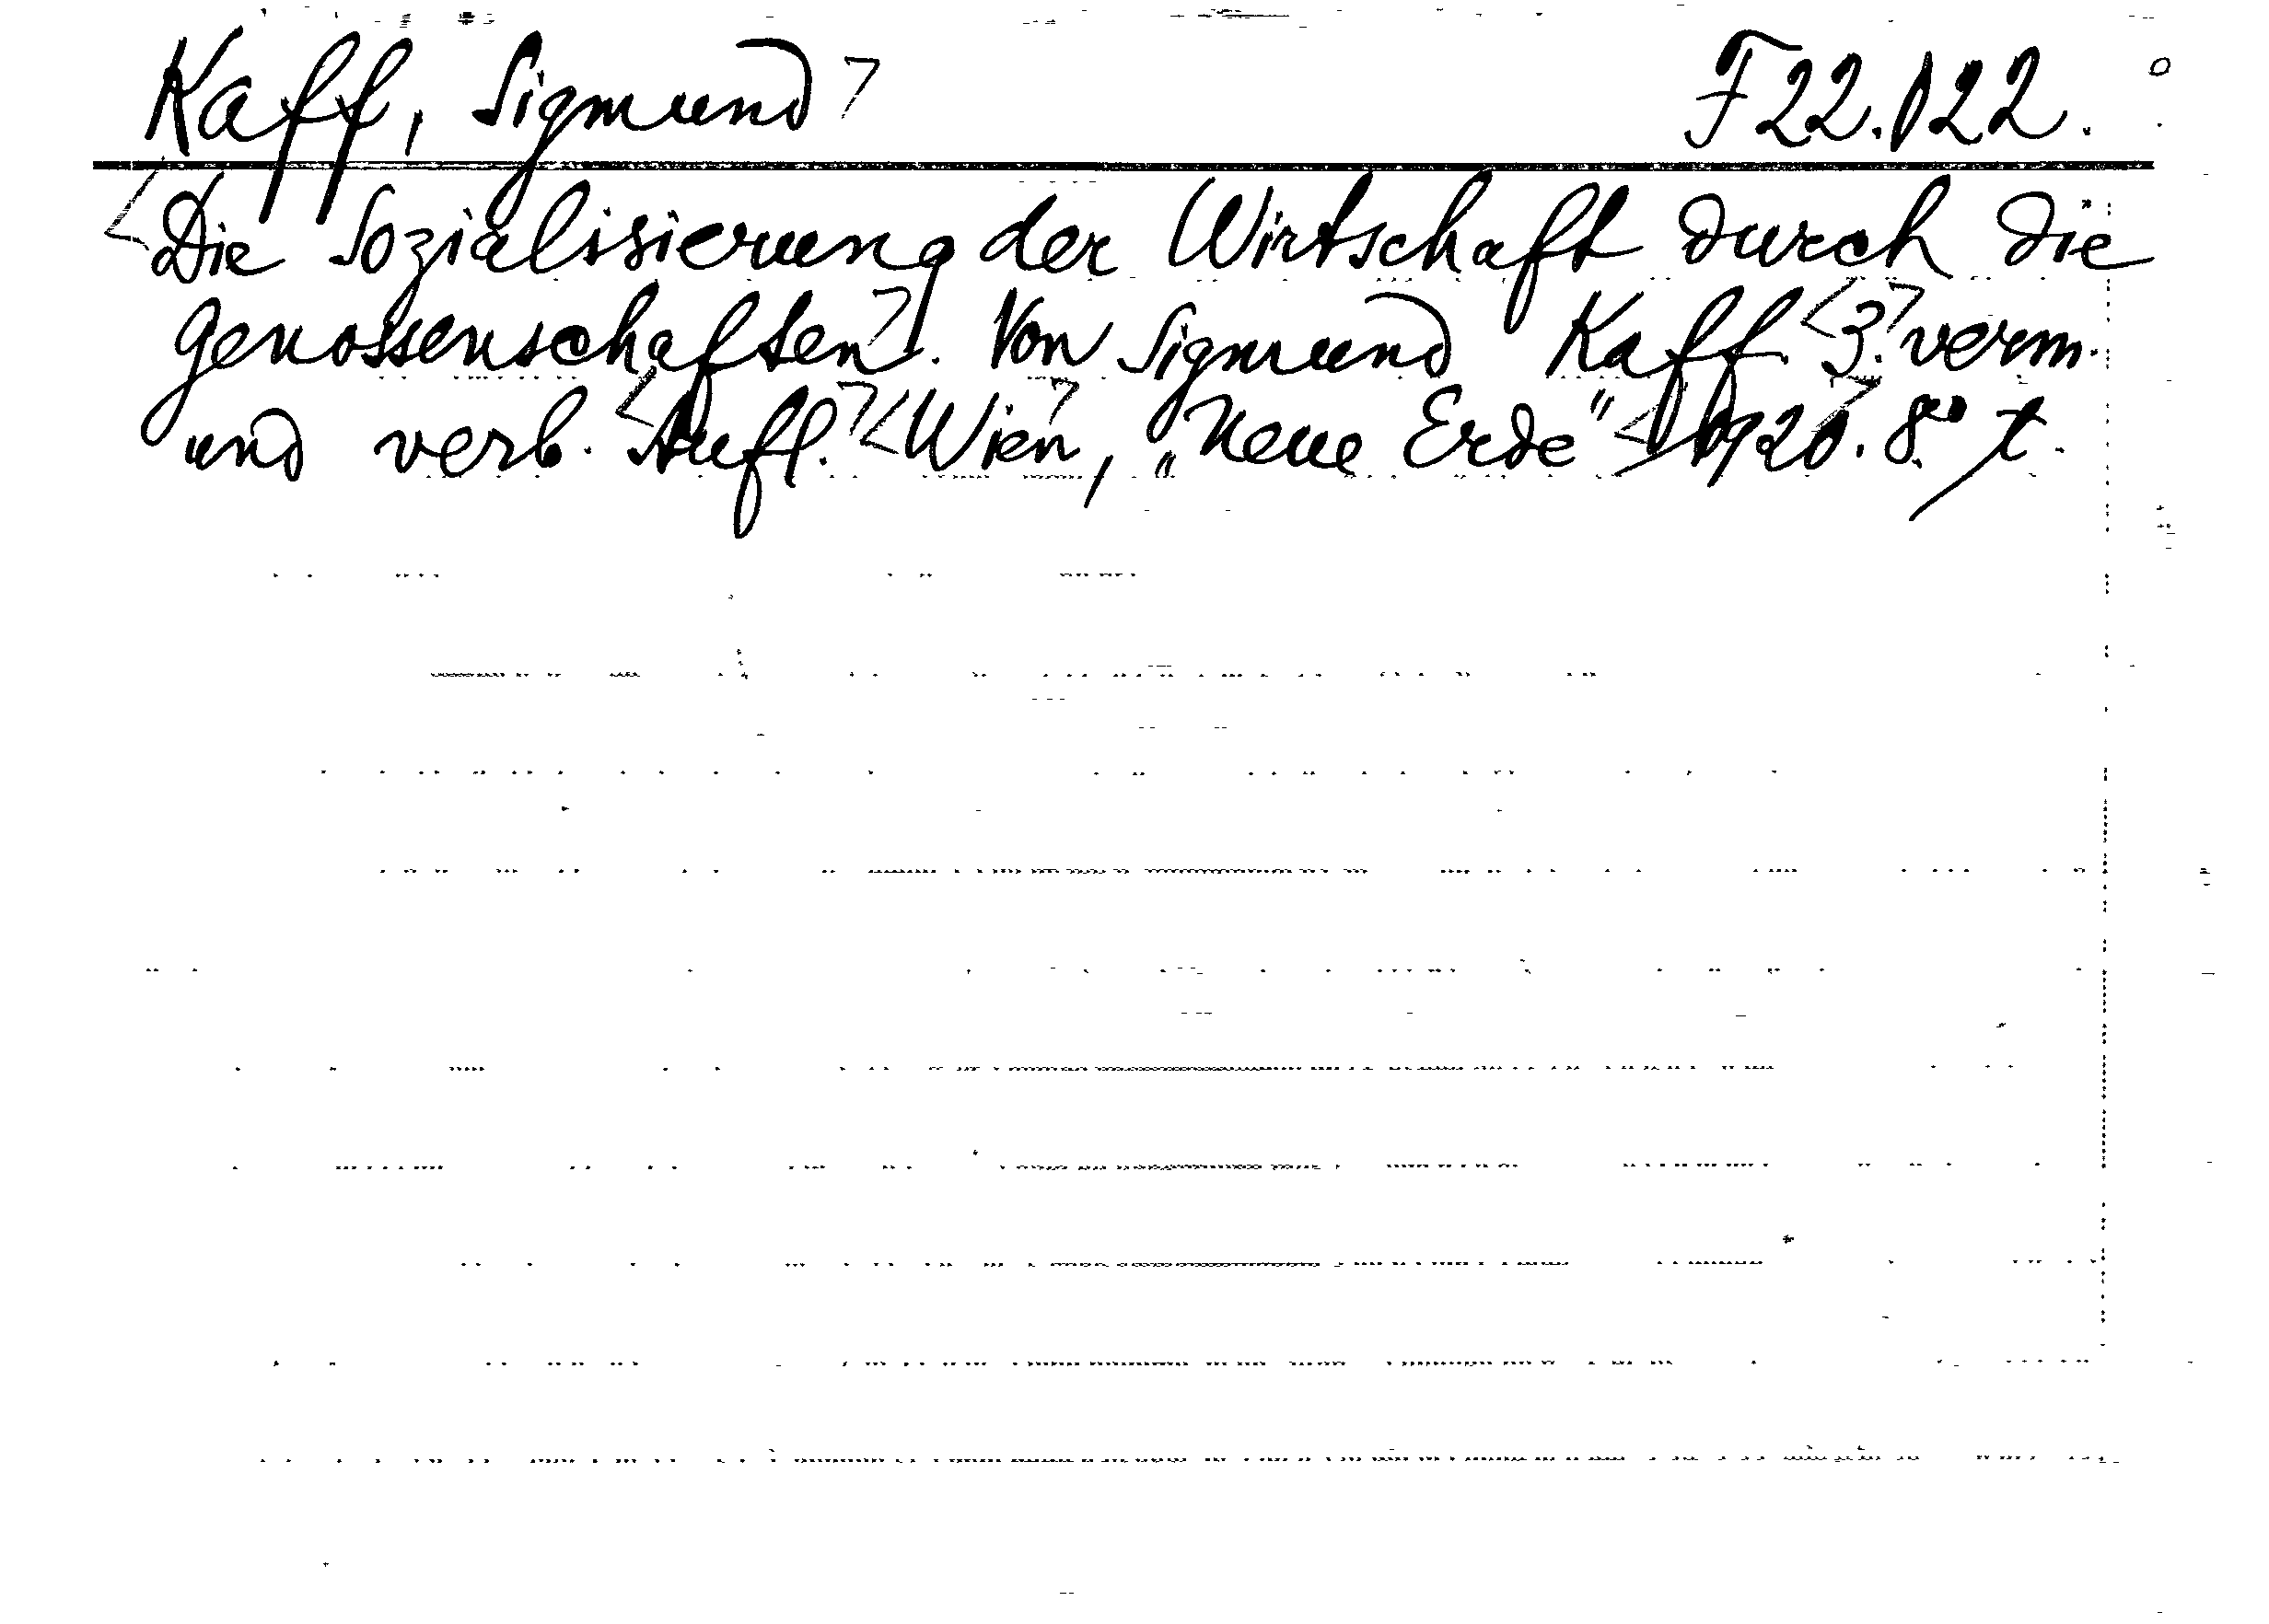 Kaff, Sigmund F 22.122.
Die Sozialisierung der Wirtschaft durch die
Genossenschaften. Von Sigmund Kaff. 3. verm.
und verb. Aufl. Wien, „Neue Erde" 1920. 8° t.